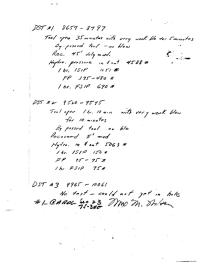 DST #1 8659 - 8797
Tool open 35 minutes with very weak blow for 5 minutes
By passed tool - no blow
Rec. 45' drlg mud.
Hydro. pressure in & out 4588#
1 hr. ISIP 1051#
FP 195-480#
1 hr. FSIP 690#
DST #2 9500 - 9545
Tool open 1 hr. 10 min with very weak blow
for 10 minutes
By passed tool no blow
Recovered 5' mud
Hydro. in & out 5063#
1 hr. ISIP 150#
FP 75-75#
1 hr FSIP 75#
DST #3 9965 - 10061
No test - could not get in hole
#1 CAROL